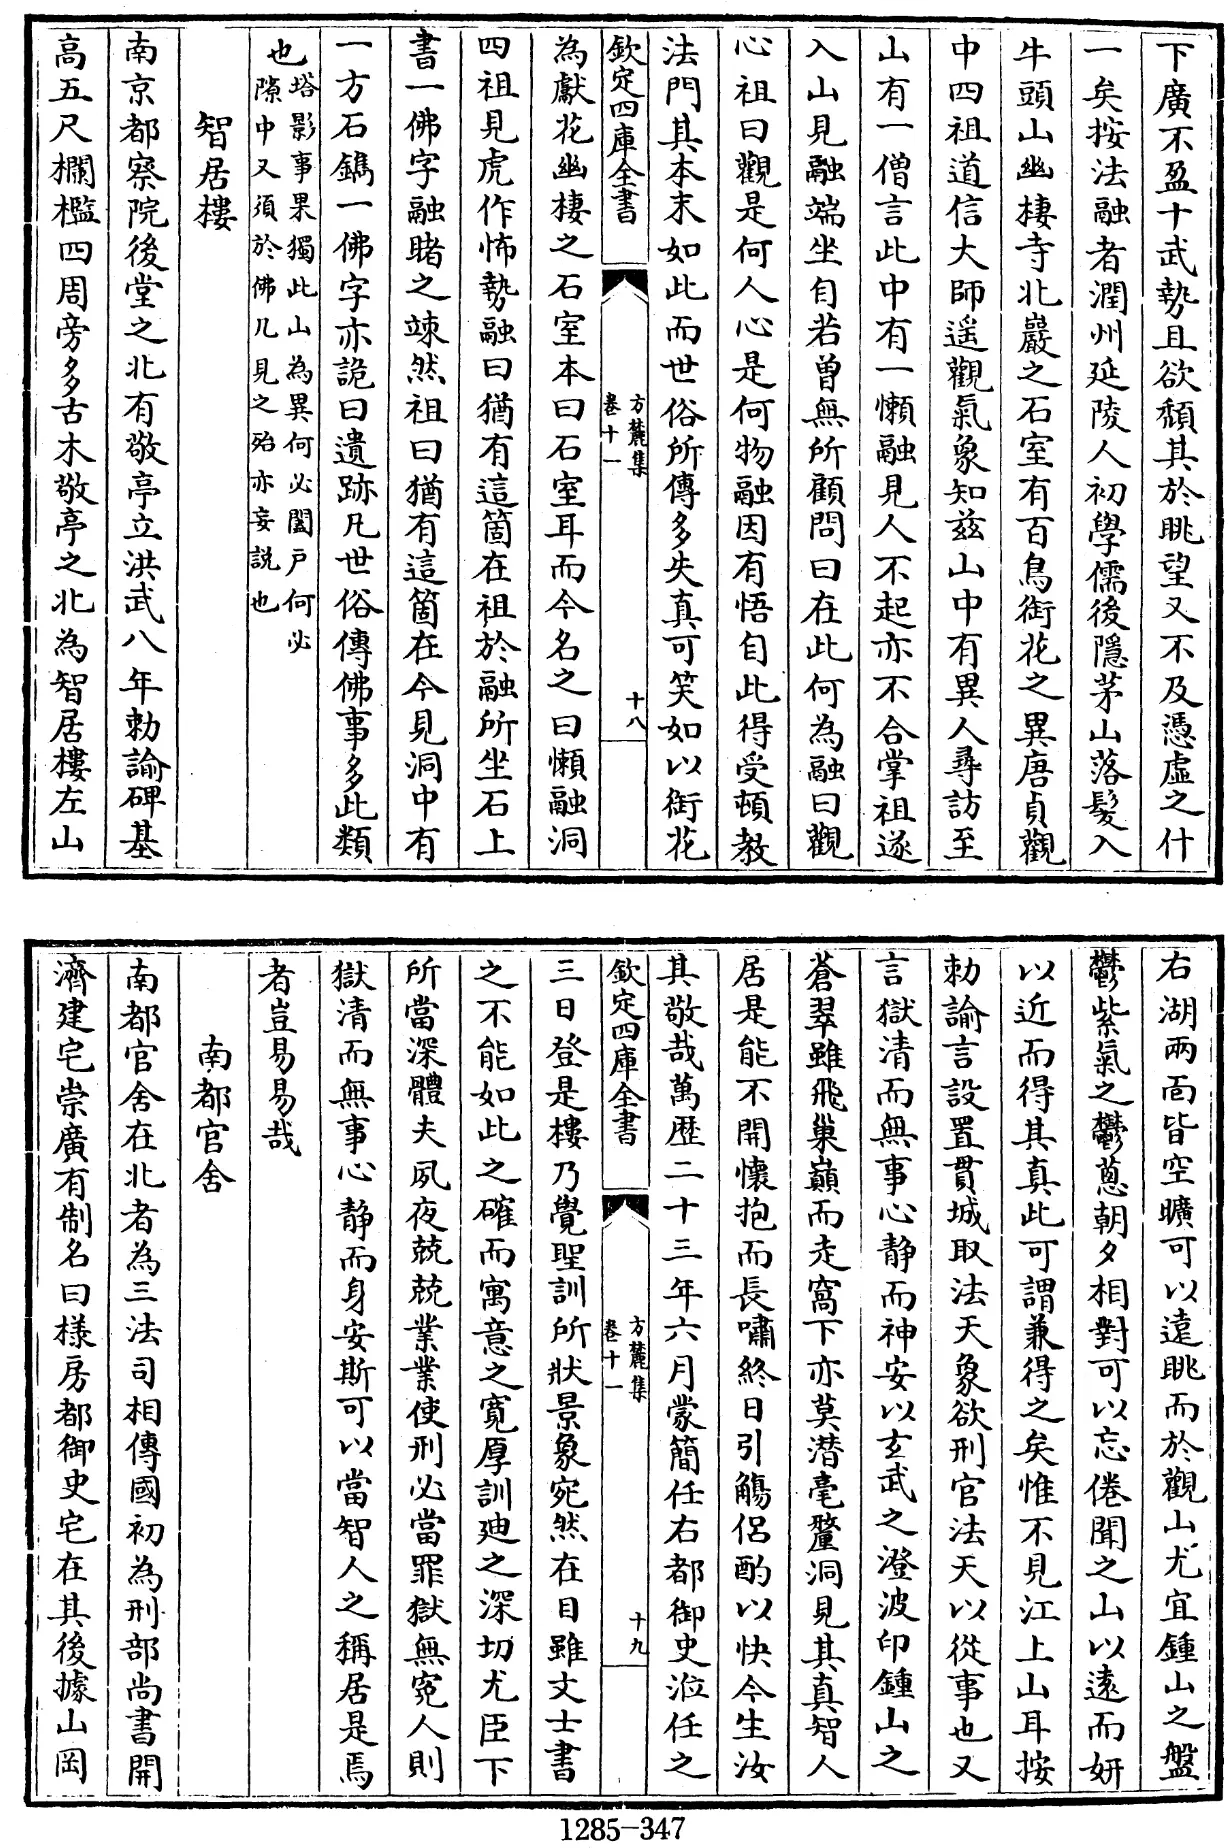 下廣不盈十武勢且欲頽其於眺望又不及憑虛之什
一矣按法融者潤州延陵人初學儒後隱茅山落髮入
牛頭山幽棲寺北巖之石室有百鳥銜花之異唐貞觀
中四祖道信大師遥觀氣象知兹山中有異人尋訪至
山有一僧言此中有一懶融見人不起亦不合掌祖遂
入山見融端坐自若曽無所顧問曰在此何為融曰觀
心祖曰觀是何人心是何物融因有悟自此得受頓教
法門其本末如此而世俗所傳多失真可笑如以銜花
欽定四庫全書
方麓集
卷十一
十八
為獻花幽棲之石室本曰石室耳而今名之曰懶融洞
四祖見虎作怖勢融曰猶有這箇在祖於融所坐石上
書一佛字融睹之竦然祖曰猶有這箇在今見洞中有
一方石鐫一佛字亦詭曰遺跡凡世俗傳佛事多此類
也
塔影事果獨此山為異何必闔戸何必
隙中又須於佛几見之殆亦妄説也
智居樓
南京都察院後堂之北有敬亭立洪武八年勅諭碑基
高五尺欄檻四周旁多古木敬亭之北為智居樓左山
右湖兩面皆空曠可以遠眺而於觀山尤宜鍾山之盤
鬱紫氣之鬱蔥朝夕相對可以忘倦聞之山以遠而妍
以近而得其真此可謂兼得之矣惟不見江上山耳按
勅諭言設置貫城取法天象欲刑官法天以從事也又
言獄清而無事心静而神安以玄武之澄波印鍾山之
蒼翠雖飛巢巔而走窩下亦莫潜毫釐洞見其真智人
居是能不開懷抱而長嘯終日引觴侣酌以快今生汝
其敬哉萬歴二十三年六月蒙簡任右都御史涖任之
欽定四庫全書
方麓集
卷十一
十九
三日登是樓乃覺聖訓所狀景象宛然在目雖文士書
之不能如此之確而寓意之寛厚訓廸之深切尤臣下
所當深體夫夙夜兢兢業業使刑必當罪獄無寃人則
獄清而無事心静而身安斯可以當智人之稱居是焉
者豈易易哉
南都官舍
南都官舍在北者為三法司相傳國初為刑部尚書開
濟建宅崇廣有制名曰樣房都御史宅在其後據山岡
1285-347